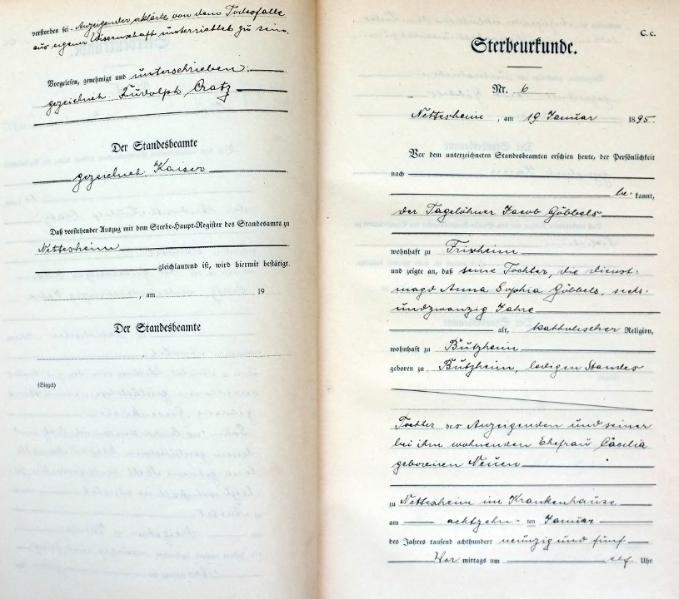 verstorben sei. Anzeigender erklärte von dem Todesfalle
aus eigener Wissenschaft unterrichtet zu sein.
Vorgelesen, genehmigt und unterschrieben.
gezeichnet. Rudolph
Der Standesbeamte
gezeichnet. Kaiser
Daß vorstehender Auszug mit dem Sterbe-Haupt-Register des Standesamts zu
Nettesheim
gleichlautend ist, wird hiermit bestätigt.
, am 19
Der Standesbeamte
(Siegel)
C. c.
Sterbeurkunde.
Nr. 6
Nettesheim, am 19 Januar 1895.
Vor dem unterzeichneten Standesbeamten erschien heute, der Persönlichkeit
nach
be kannt,
der Tagelöhner Jacob Göbbels
wohnhaft zu Frixheim
und zeigte an, daß seine Tochter, die Dienst-
magd Anna Sophia Göbbels, sechs-
undzwanzig Jahre
alt, katholischer Religion,
wohnhaft zu Bützheim
geboren zu Bützheim, ledigen Standes
Tochter des Anzeigenden und seiner
bei ihm wohnenden Ehefrau Cäcilia
geborenen Neuen
zu Nettesheim im Krankenhause
am achtzehn- ten Januar
des Jahres tausend achthundert neunzig und fünf
Vor mittags um elf Uhr